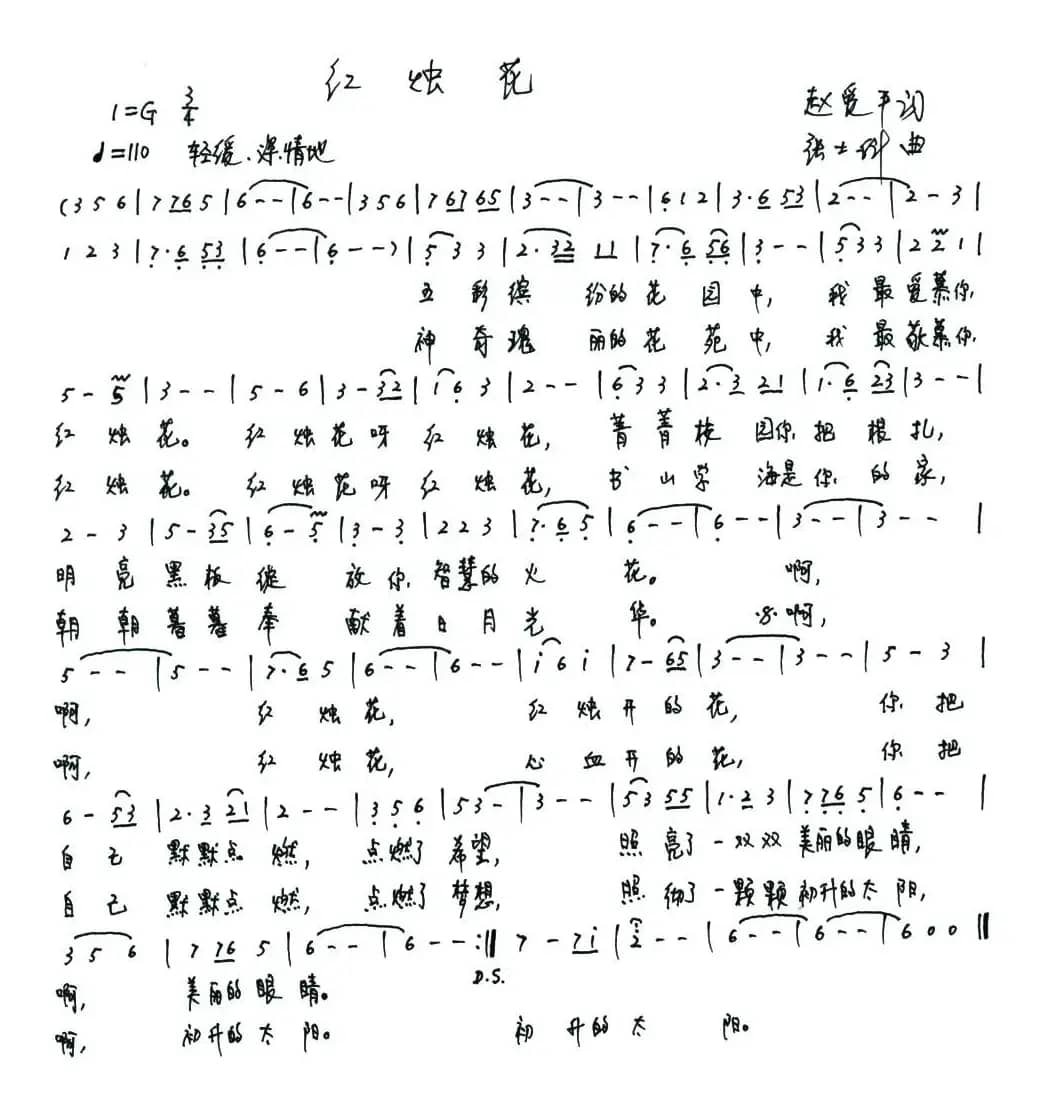 红烛花
1=G 3/4
赵爱平词
♩=110 轻缓、深情地
张士科曲
(3 5 6 | 7 76 5 | 6 - - | 6 - - | 3 5 6 | 7 67 65 | 3 - - | 3 - - | 6 1 2 | 3· 6 53 | 2 - - | 2 - 3 |
1 2 3 | 7· 6 53 | 6 - - | 6 - -) | 5 3 3 | 2· 32 11 | 7· 6 56 | 3 - - | 5 3 3 | 2 2 1 |
五彩缤纷的花园中,我最爱慕你,
神奇瑰丽的花苑中,我最敬慕你,
5 - 5 | 3 - - | 5 - 6 | 3 - 32 | 1 6 3 | 2 - - | 6 3 3 | 2· 3 21 | 1· 6 23 | 3 - - |
红烛花。红烛花呀红烛花,菁菁校园你把根扎,
红烛花。红烛花呀红烛花,书山学海是你的家,
2 - 3 | 5 - 35 | 6 - 5 | 3 - 3 | 2 2 3 | 7· 6 5 | 6 - - | 6 - - | 3 - - | 3 - - |
明亮黑板绽放你智慧的火花。啊,
朝朝暮暮奉献着日月光华。𝄋啊,
5 - - | 5 - - | 7· 6 5 | 6 - - | 6 - - | i 6 i | 7 - 65 | 3 - - | 3 - - | 5 - 3 |
啊,红烛花,红烛开的花,你把
啊,红烛花,心血开的花,你把
6 - 53 | 2· 3 21 | 2 - - | 3 5 6 | 53 - | 3 - - | 5 3 55 | 1· 2 3 | 7 76 5 | 6 - - |
自己默默点燃,点燃了希望,照亮了一双双美丽的眼睛,
自己默默点燃,点燃了梦想,照彻了一颗颗初升的太阳,
3 5 6 | 7 76 5 | 6 - - | 6 - - :‖ 7 - 7i | 2 - - | 6 - - | 6 - - | 6 0 0 ‖
D.S.
啊,美丽的眼睛。
啊,初升的太阳。初升的太阳。